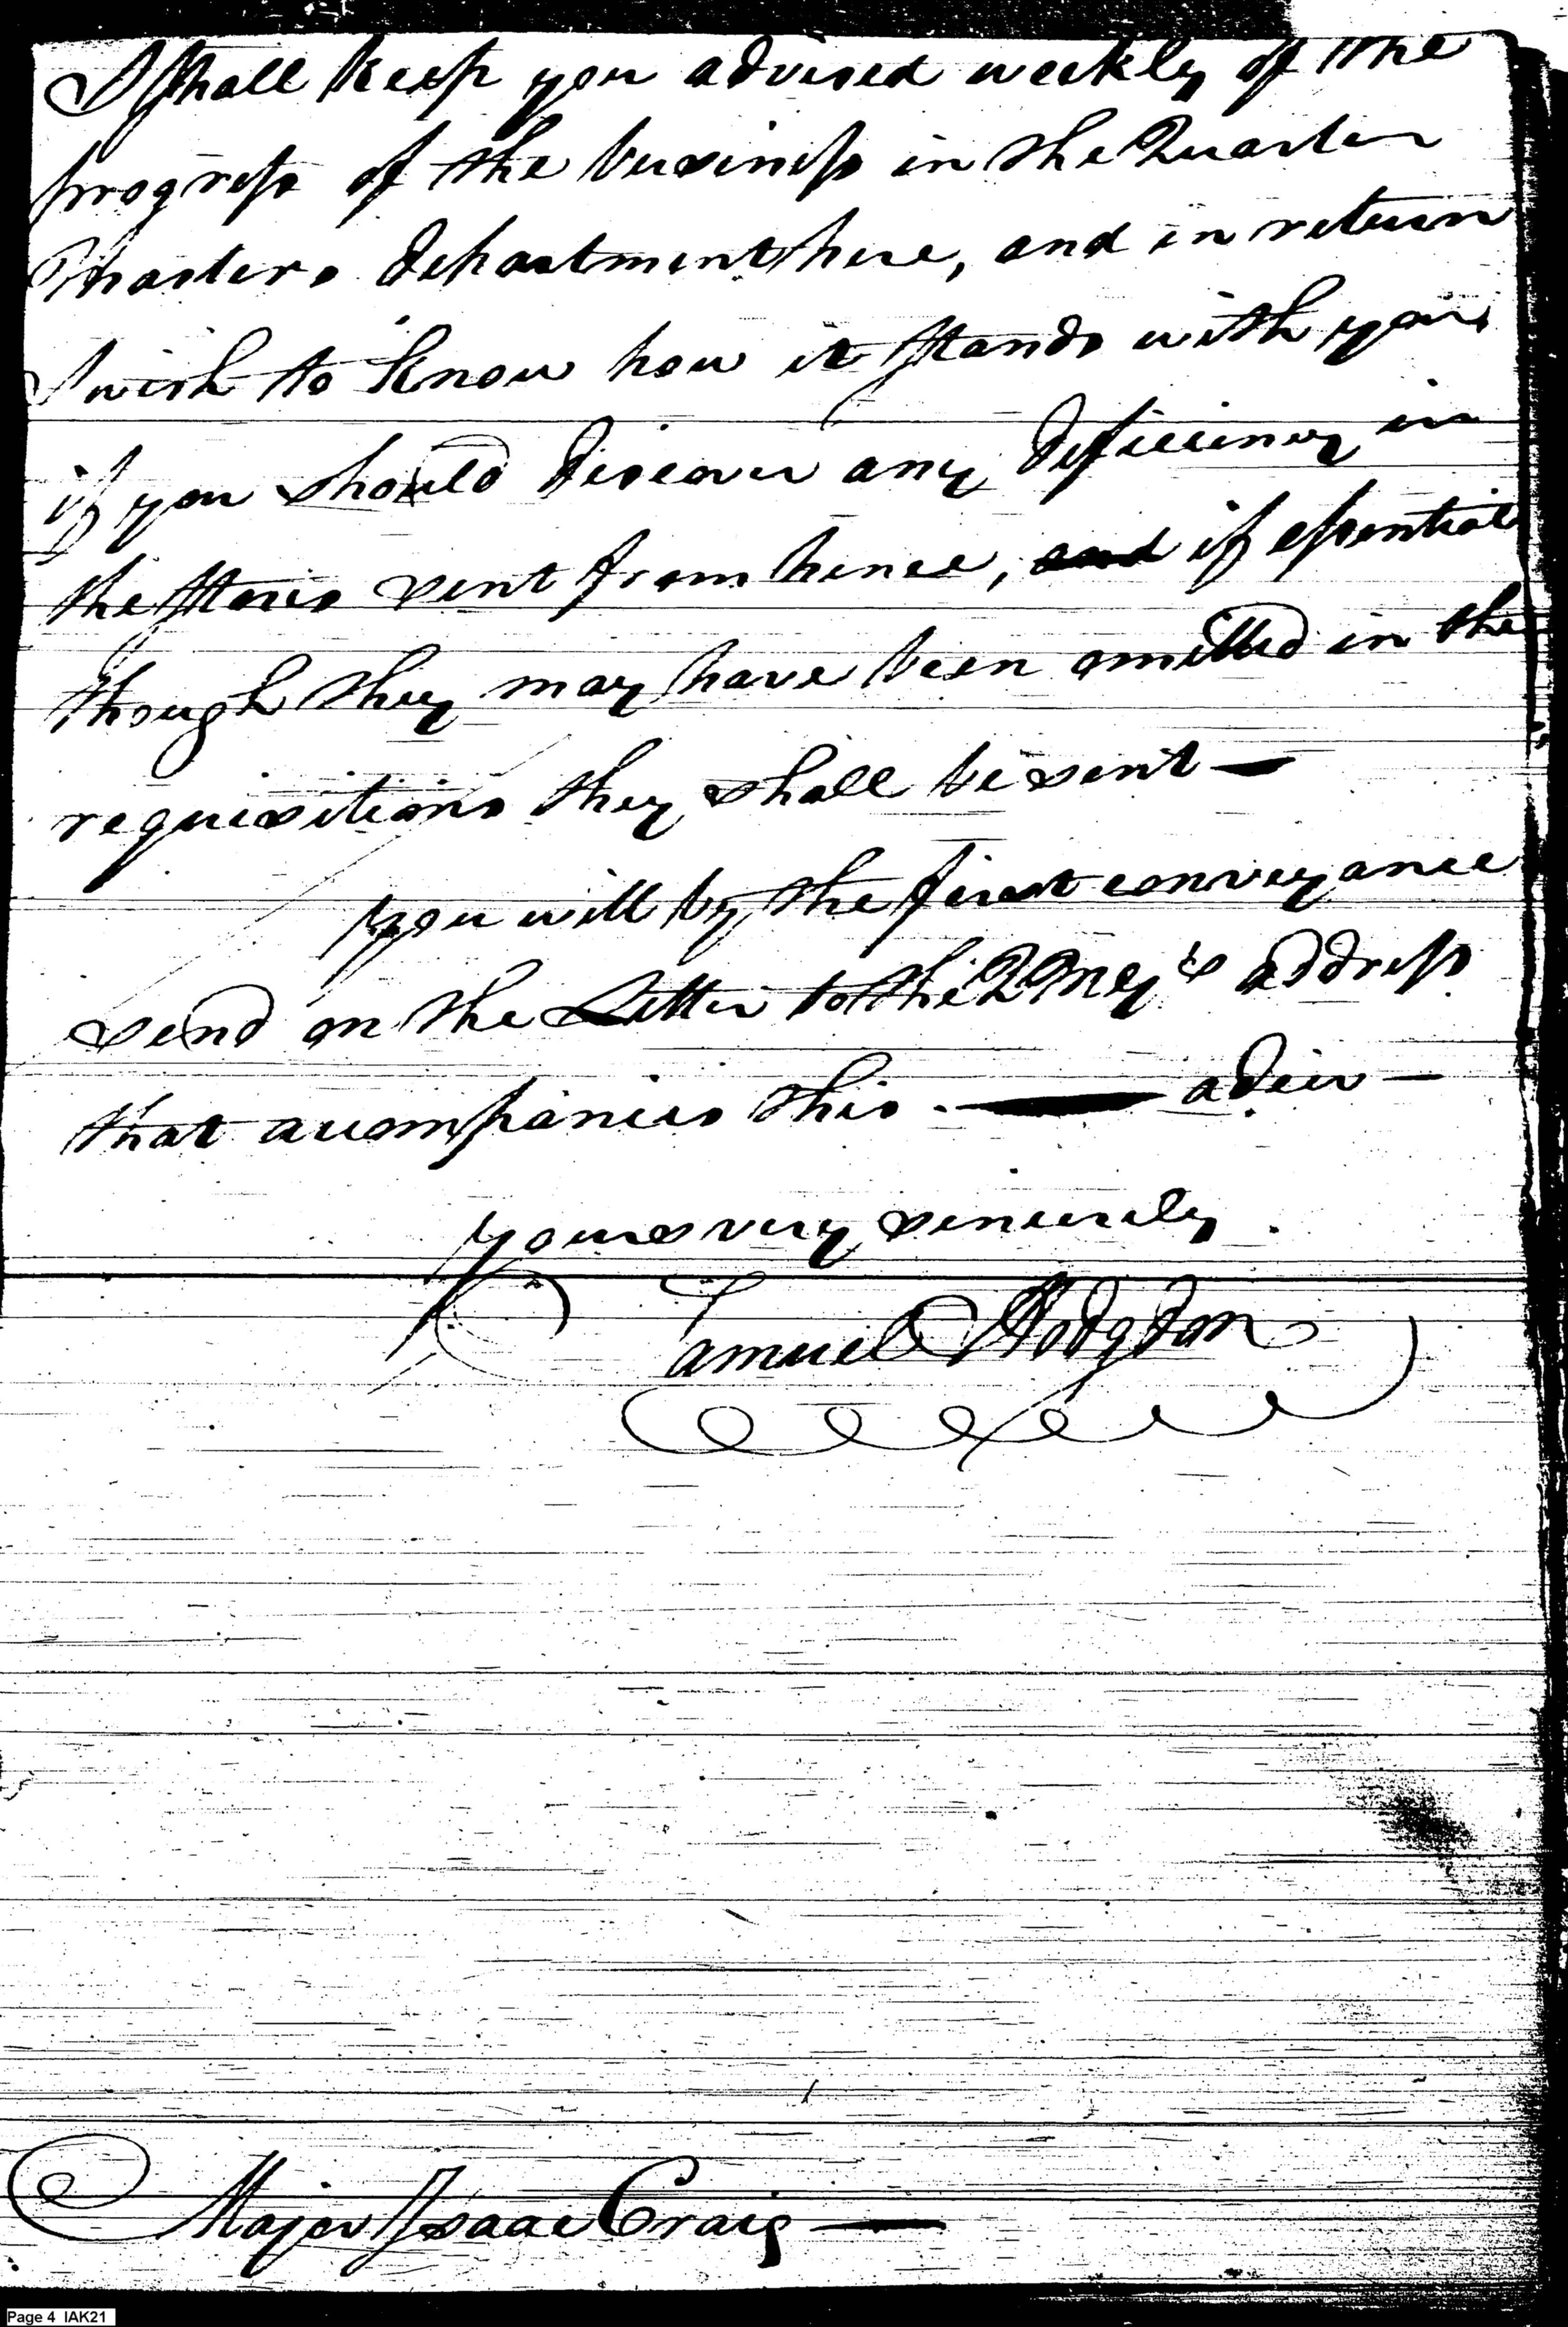 I shall keep you advised weekly of the
progress of the business in the Quarter
Masters department here, and in return
I wish to know how it stands with you,
if you should discover any deficiency in
the stores sent from hence, and if essential
though they may have been omitted in the
requisitions they shall be sent —
you will by the first conveyance
send on the Letter to the address
that accompanies this. — adieu —
yours very sincerely.
Samuel Hodgdon
Major Isaac Craig —
Page 4 IAK21